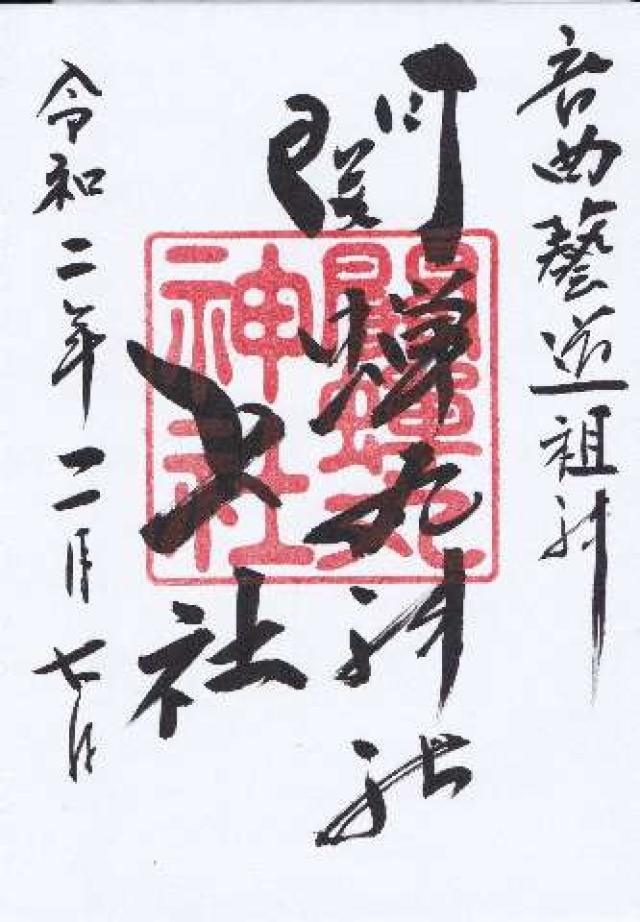 音曲藝道祖神
関蝉丸神社
社
令和二年二月七日
關蟬丸
神社